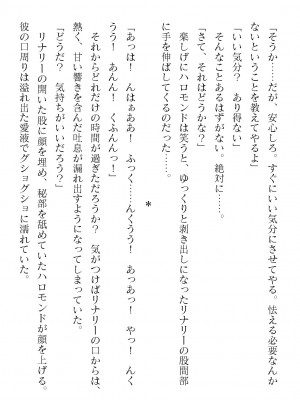 「そうか……だが、安心しろ。すぐにいい気分にさせてやる。怯える必要なんか
ないということを教えてやるよ」
「いい気分？　あり得ない」
そんなことあるはずがない。絶対に……。
「さて、それはどうかな？」
楽しげにハロモンドは笑うと、ゆっくりと剥き出しになったリナリーの股間部
に手を伸ばしてくるのだった……。
＊
「あっは！　んはぁぁあ！　ふっく……んくうう！　あっあっ！　やっ！　んく
うう！　あんん！　くふんんっ！」
それからどれだけの時間が過ぎただろうか？　気がつけばリナリーの口からは、
熱く、甘い響きを含んだ吐息が漏れ出すようになってしまっていた。
「どうだ？　気持ちがいいだろう？」
リナリーの開いた股に顔を埋め、秘部を舐めていたハロモンドが顔を上げる。
彼の口周りは溢れ出た愛液でグショグショに濡れていた。